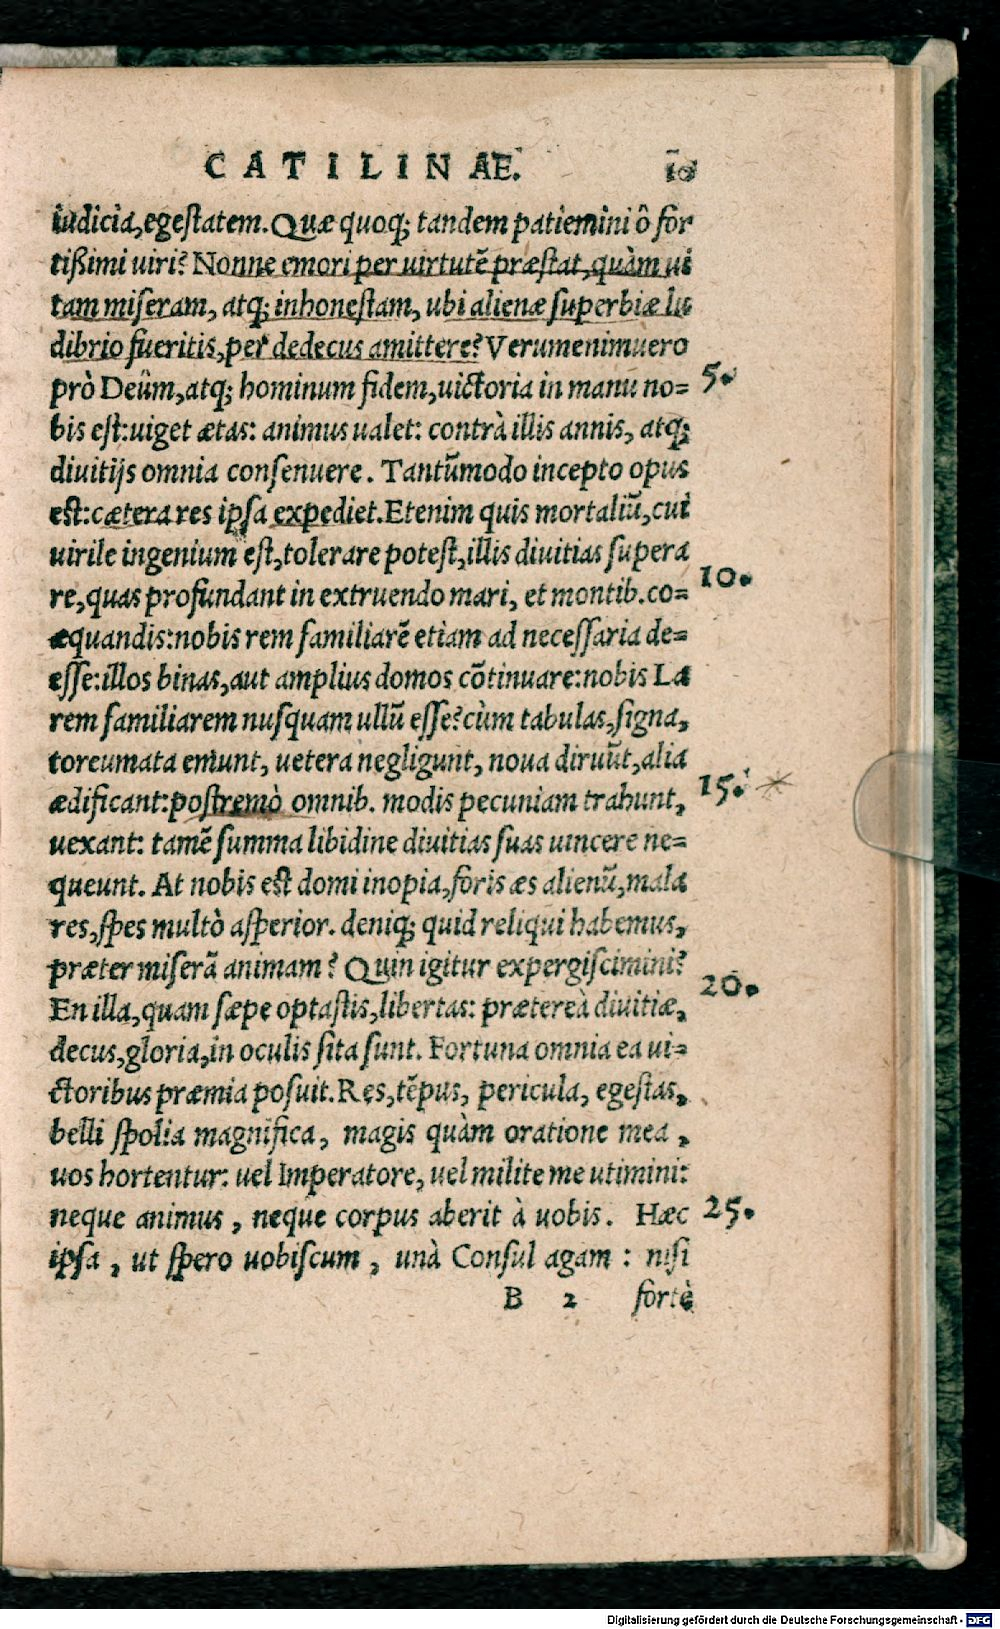 CATILINAE. 10
iudicia,egeſtatem.Quæ quoq; tandem patiemini ô for
tißimi uiri? Nonne emori per uirtutẽ præſtat,quàm ui
tam miſeram, atq; inhoneſtam, ubi alienæ ſuperbiæ lu
dibrio fueritis,per dedecus amittere? Verumenimuero
prò Deûm,atq; hominum fidem,uictoria in manu no= 5.
bis eſt:uiget ætas: animus ualet: contrà illis annis, atq;
diuitijs omnia conſenuere. Tantũmodo incepto opus
eſt:cætera res ipſa expediet.Etenim quis mortaliũ,cui
uirile ingenium eſt,tolerare poteſt,illis diuitias ſupera
re,quas profundant in extruendo mari, et montib.co= 10.
æquandis:nobis rem familiarẽ etiam ad neceſſaria de=
eſſe:illos binas,aut amplius domos cõtinuare:nobis La
rem familiarem nuſquam ullũ eſſe?cùm tabulas,ſigna,
toreumata emunt, uetera negligunt, noua diruũt,alia
ædificant:poſtremò omnib. modis pecuniam trahunt, 15.
uexant: tamẽ ſumma libidine diuitias ſuas uincere ne=
queunt. At nobis eſt domi inopia,foris æs alienũ,mala
res,ſpes multò aſperior. deniq; quid reliqui habemus,
præter miſerã animam? Quin igitur expergiſcimini?
En illa,quam ſæpe optaſtis,libertas: prætereà diuitiæ, 20.
decus,gloria,in oculis ſita ſunt. Fortuna omnia ea ui=
ctoribus præmia poſuit.Res,tẽpus, pericula, egeſtas,
belli ſpolia magnifica, magis quàm oratione mea,
uos hortentur: uel Imperatore, uel milite me utimini:
neque animus, neque corpus aberit à uobis. Hæc 25.
ipſa, ut ſpero uobiſcum, unà Conſul agam: niſi
B 2 fortè
Digitalisierung gefördert durch die Deutsche Forschungsgemeinschaft - DFG